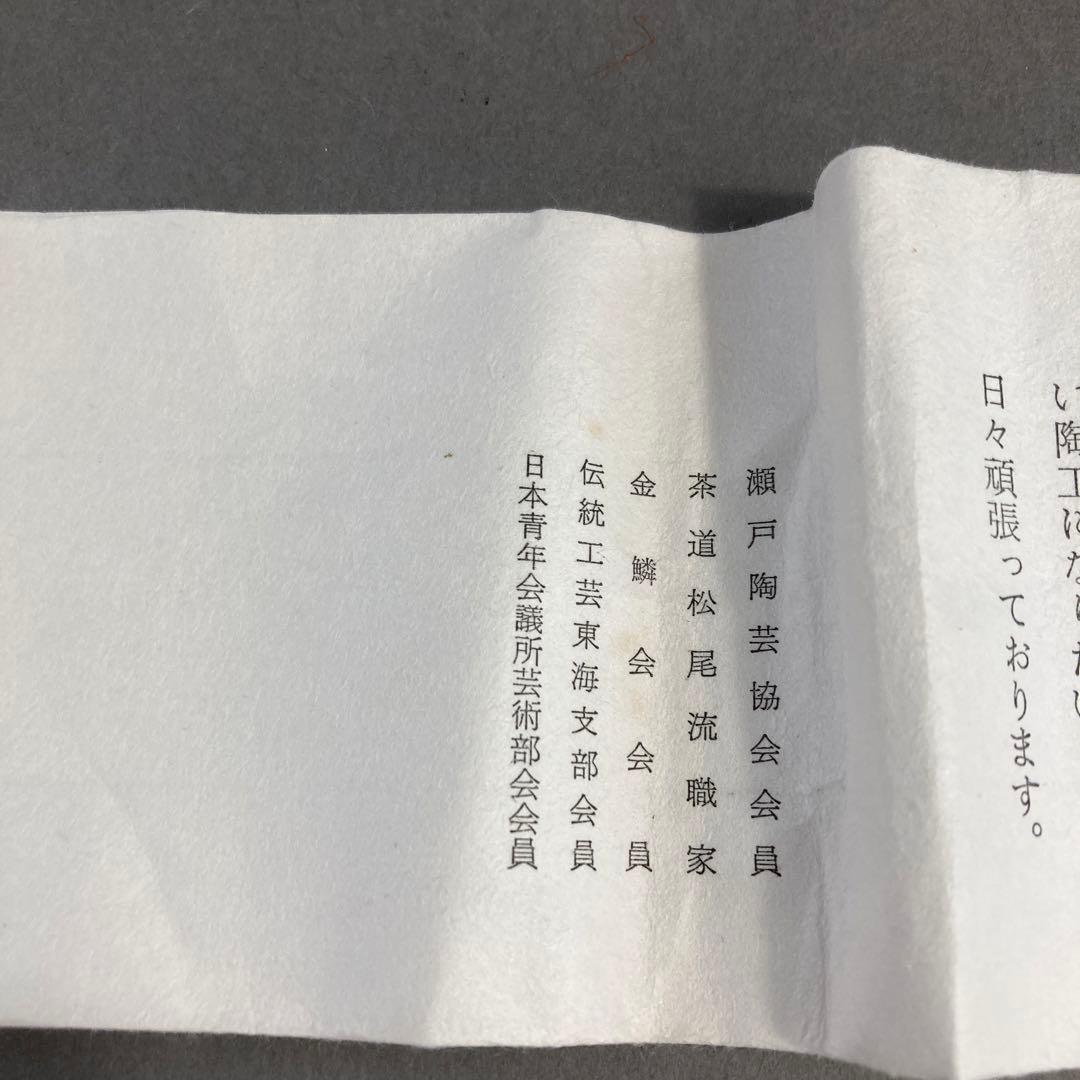 い陶工になりたい
日々頑張っております。
瀬戸陶芸協会会員
茶道松尾流職家
金鱗会会員
伝統工芸東海支部会員
日本青年会議所芸術部会会員